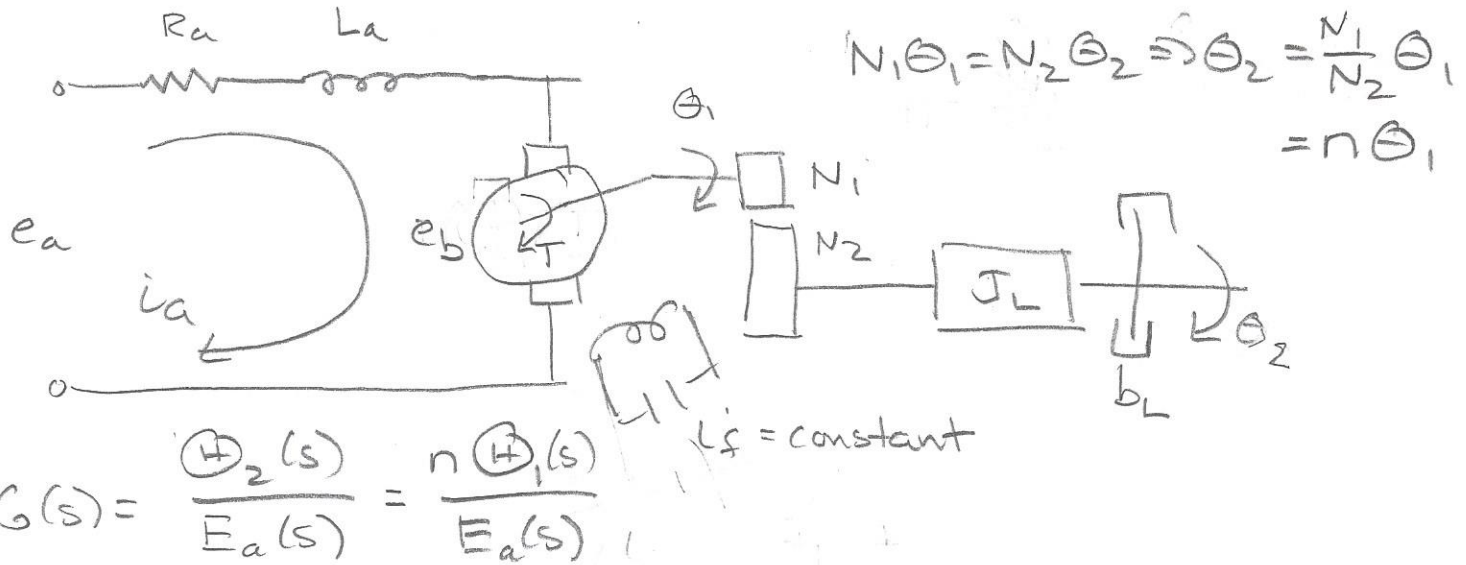 Ra La
N₁Θ₁ = N₂Θ₂ ⇒ Θ₂ = N₁/N₂ Θ₁
= nΘ₁
θ₁
N₁
ea
eb
T
N₂
ia
J_L
θ₂
b_L
if = constant
G(s) = Ⓗ₂(s)/Ea(s) = nⒽ₁(s)/Ea(s)